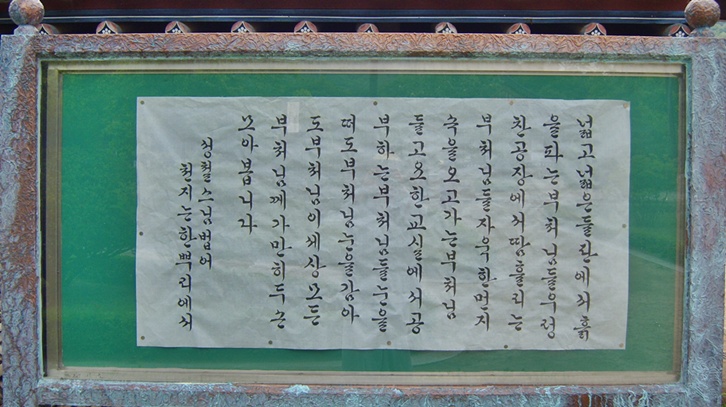 넓고 넓은 들판에서 흙
을 파는 부처님들 우렁
찬 공장에서 땀 흘리는
부처님들 자욱한 먼지
속을 오고가는 부처님
들 고요한 교실에서 공
부하는 부처님들 눈을
떠도 부처님 눈을 감아
도 부처님 이 세상 모든
부처님께 가만히 두 손
모아봅니다
성철스님 법어
천지는 한 뿌리에서